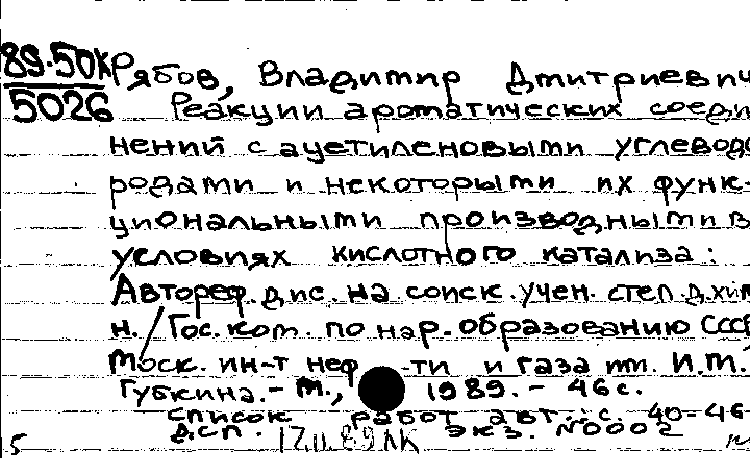 89-50К
5026
Рябов, Владимир Дмитриевич
Реакции ароматических соеди
нений с ацетиленовыми углевод
родами и некоторыми их функ-
циональными производными в
условиях кислотного катализа:
Автореф. дис. на соиск. учен. степ. д. хим
н. / Гос. ком. по нар. образованию СССР
Моск. ин-т неф -ти и газа им. И.М.
Губкина. - М., 1989. - 46 с.
Список работ авт.: с. 40-46
ДСП. экз. N0002
5 12.11.89